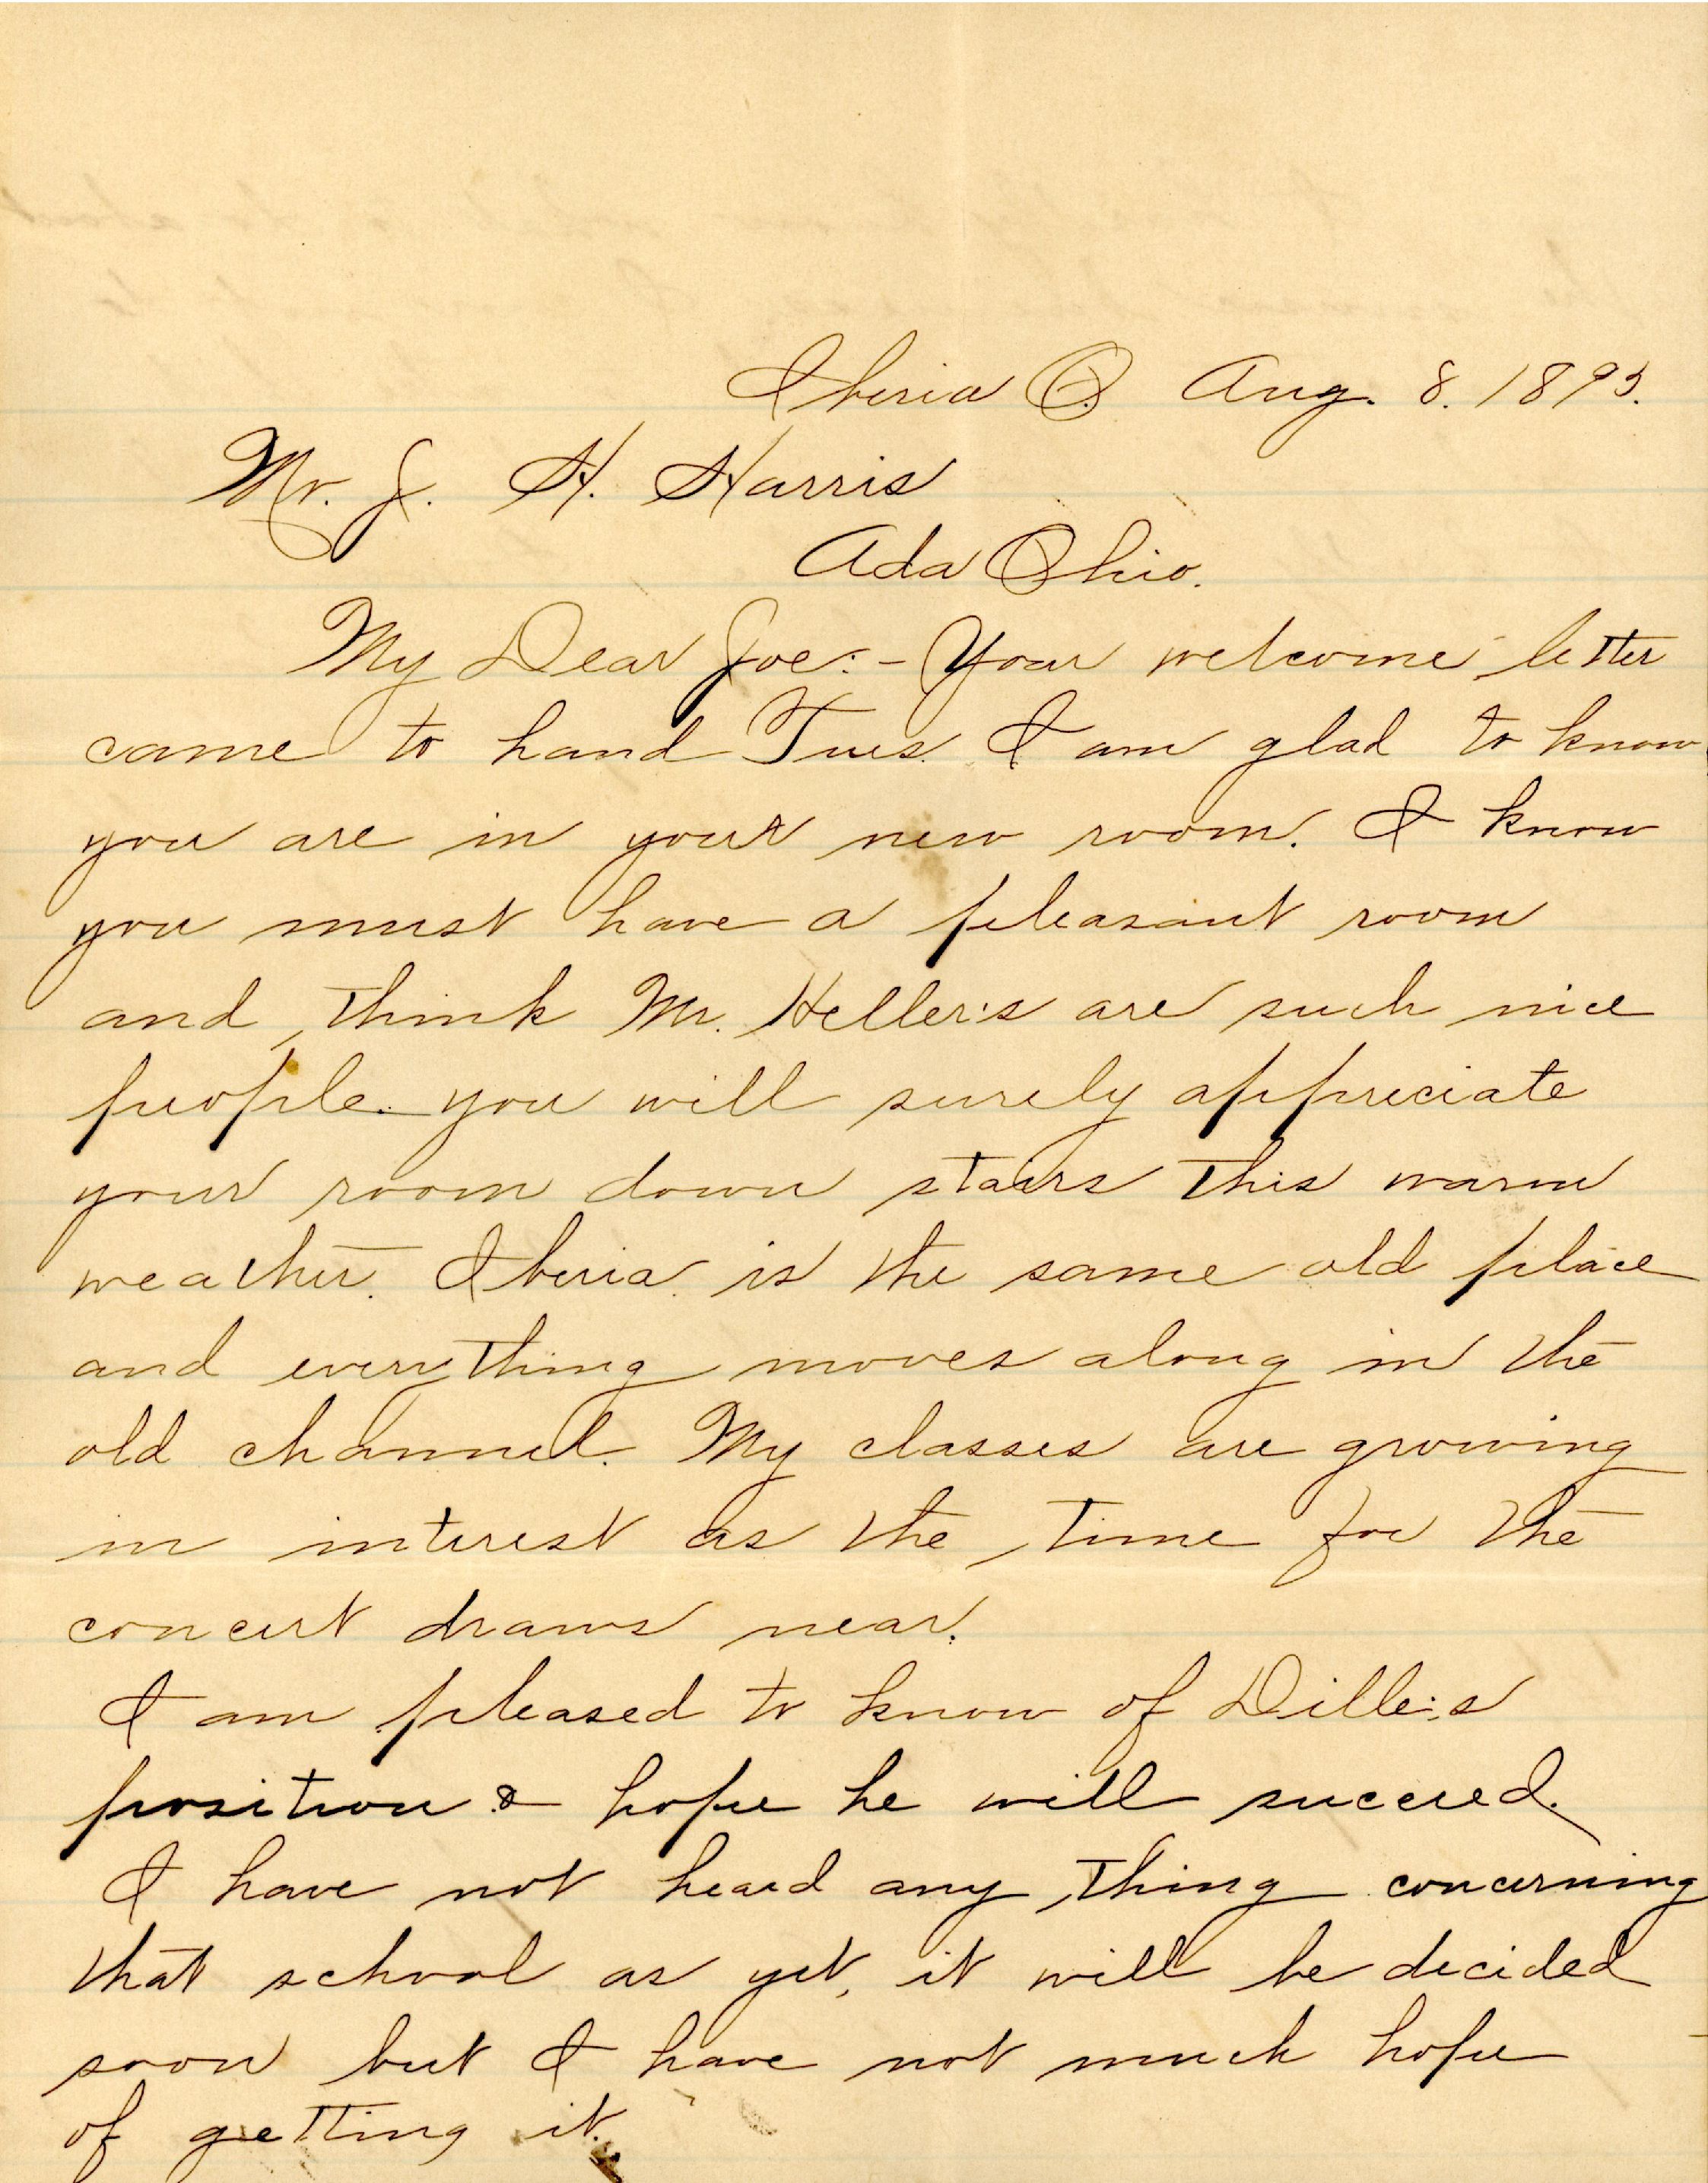 Iberia O. Aug. 8. 1895.
Mr. J. H. Harris
Ada Ohio.
My Dear Joe:- Your welcome letter
came to hand Tues. I am glad to know
you are in your new room. I know
you must have a pleasant room
and think Mr. Heller's are such nice
people. you will surely appreciate
your room down stairs this warm
weather. Iberia is the same old place
and everything moves along in the
old channel. My classes are growing
in interest as the time for the
concert draws near.
I am pleased to know of Dille's
position & hope he will succeed.
I have not heard any thing concerning
that school as yet, it will be decided
soon but I have not much hope
of getting it.